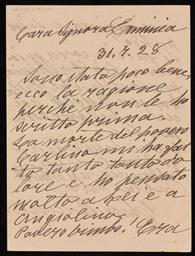 Cara Signora Erminia
31.7.28
Sono stata poco bene,
ecco la ragione
perchè non le ho
scritto prima.
La morte del povero
Carlino mi ha fat
to tanto tanto do
lore e ho pensato
molto a lei e a
Angiolino.
Povero bimbo! Era